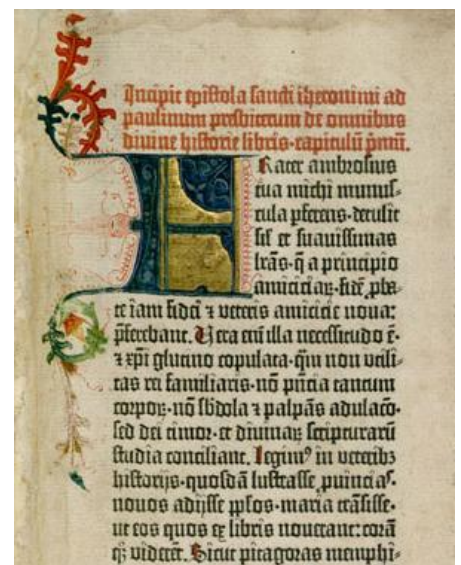 Incipit epistola sancti iheronimi ad
paulinum presbiterum de omnibus
divine historie libris·capitulũ pⁱmũ.
Frater ambrosius
tua michi munus-
cula pferens·detulit
sil̃ et suavissimas
lr̃as·q̃ a principio
amiciciaꝝ·fidẽ ꝓba-
te iam fidei ⁊ veteris amicicie nova:
p̃ferebant. Vera eñ illa necessitudo ẽ·
⁊ xp̃i glutino copulata·q̃m non utili-
tas rei familiaris·nõ pñcia tantum
corpoꝝ·nõ sb̃dola ⁊ palpãs adulacõ·
sed dei timor·et divinaꝝ scripturarũ
studia conciliant. Legimꝰ in veteribꝫ
historijs·quosdã lustrasse ꝓuincias̃·
novos adijsse pp̃los·maria trãsisse·
ut eos quos ex libris noverant: corã
qꝫ viderẽt. Sicut pitagoras memphi-